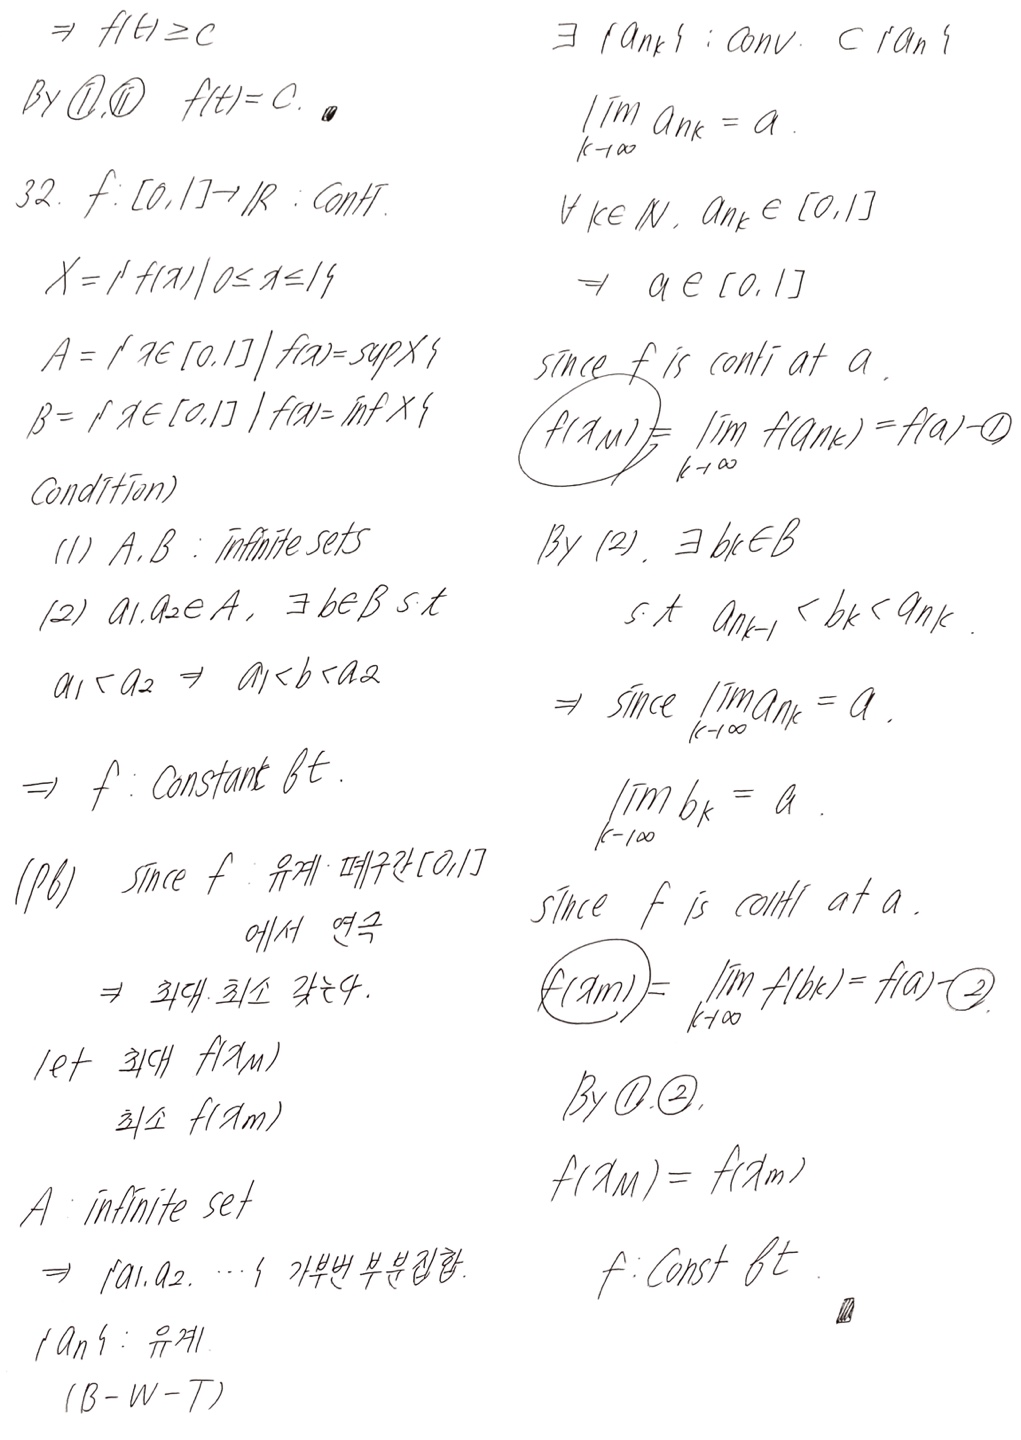 ⇒ f(t) ≥ c
By ①,⑪ f(t) = C.
32. f : [0,1] → ℝ : Conti.
X = { f(x) | 0 ≤ x ≤ 1 }
A = { x ∈ [0,1] | f(x) = sup X }
B = { x ∈ [0,1] | f(x) = inf X }
Condition)
(1) A, B : infinite sets
(2) a₁, a₂ ∈ A, ∃ b ∈ B s.t
a₁ < a₂ ⇒ a₁ < b < a₂
⇒ f : Constant ft.
(pf) since f : 유계·폐구간 [0,1]
에서 연극
⇒ 최대·최소 갖는다.
let 최대 f(x_M)
최소 f(x_m)
A : infinite set
⇒ {a₁, a₂, ⋯} 가부번 부분집합.
{aₙ} : 유계
(B-W-T)
∃ {a_{n_k}} : conv. ⊂ {aₙ}
lim_{k→∞} a_{n_k} = a.
∀ k ∈ ℕ, a_{n_k} ∈ [0,1]
⇒ a ∈ [0,1]
since f is conti at a.
f(x_M) = lim_{k→∞} f(a_{n_k}) = f(a) - ①
By (2), ∃ b_k ∈ B
s.t a_{n_{k-1}} < b_k < a_{n_k}.
⇒ since lim_{k→∞} a_{n_k} = a.
lim_{k→∞} b_k = a.
since f is conti at a.
f(x_m) = lim_{k→∞} f(b_k) = f(a) - ②.
By ①.②.
f(x_M) = f(x_m)
f : Const ft.